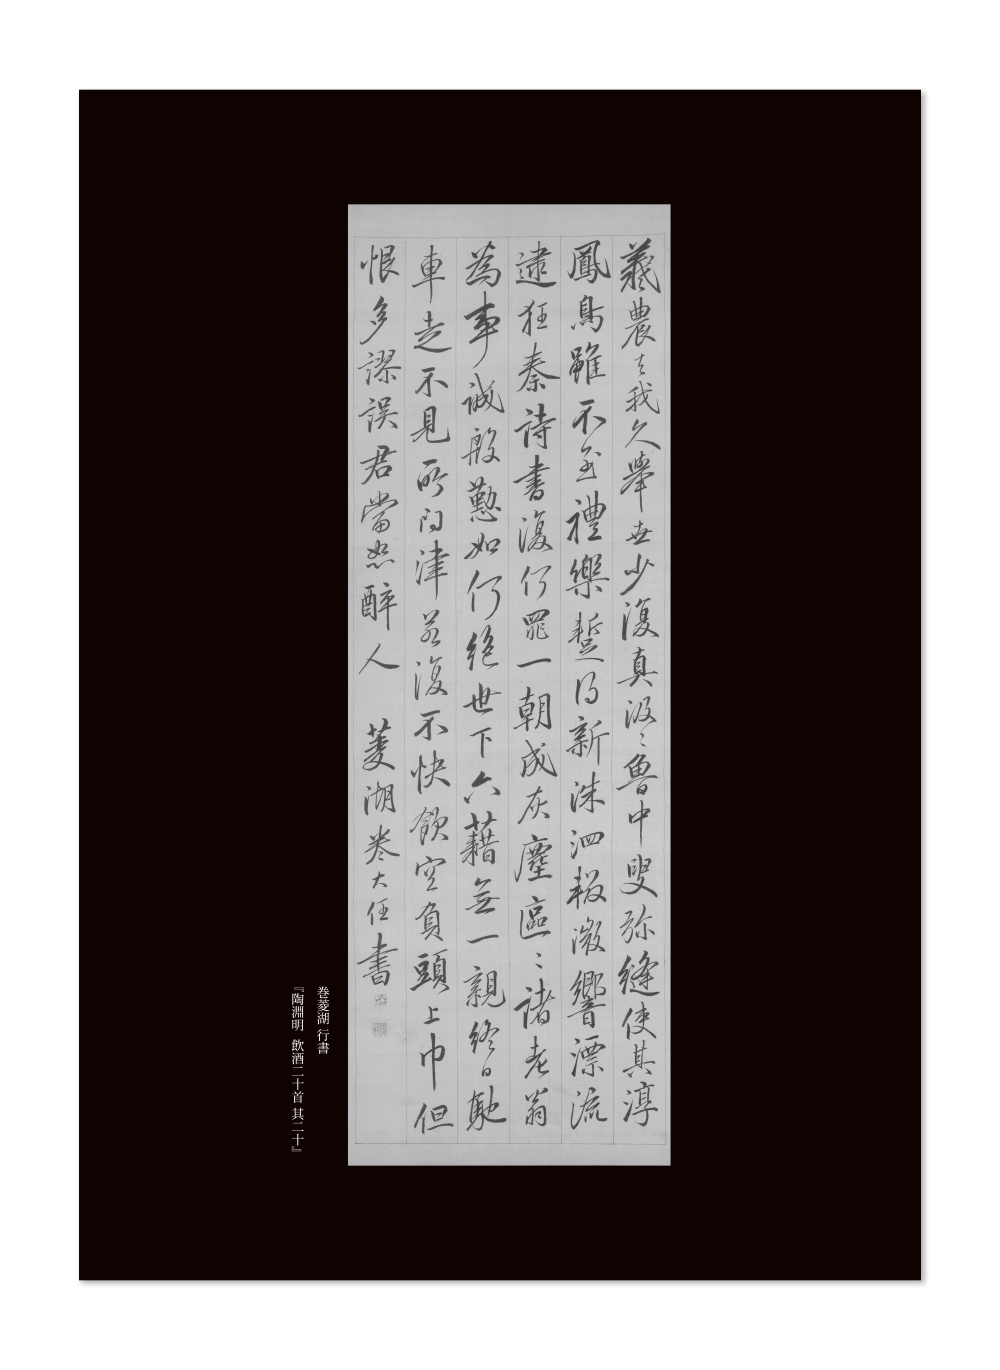 羲農去我久舉世少復真汲〻魯中叟弥縫使其淳
鳳鳥雖不至禮樂蹔得新洙泗輟微響漂流
逮狂秦詩書復何罪一朝成灰塵區〻諸老翁
為事誠殷懃如何絶世下六藉無一親終日馳
車走不見所問津若復不快飲空負頭上巾但
恨多謬誤君當恕醉人 菱湖巻大任書
巻菱湖 行書
『陶淵明 飲酒二十首 其二十』